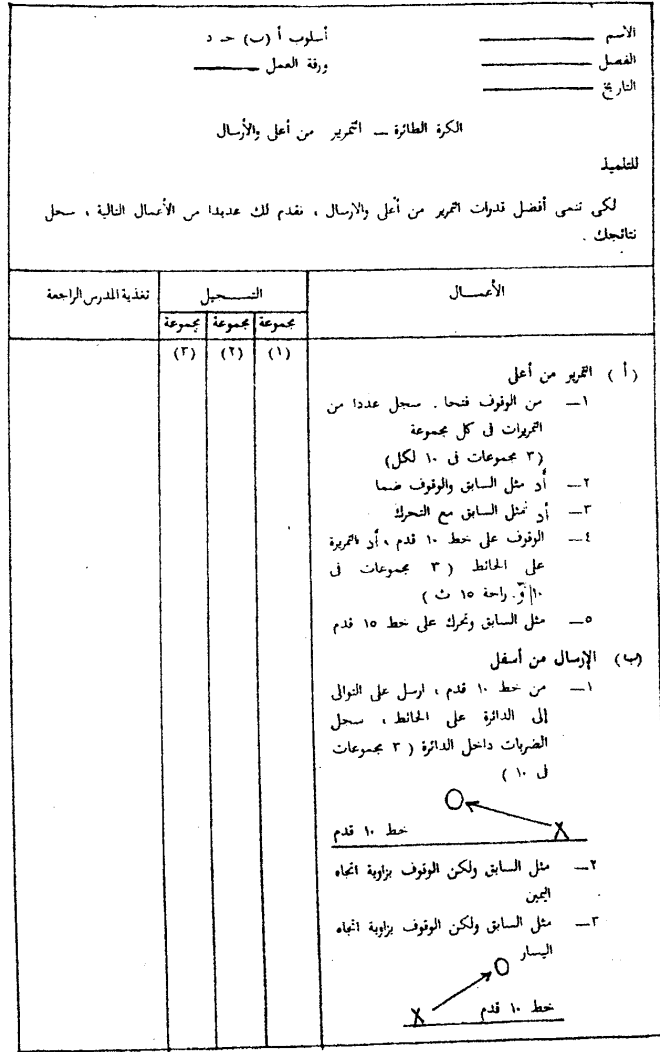 الاسم
أسلوب أ (ب) حـ د
الفصل
ورقة العمل
التاريخ
الكرة الطائرة ــ التمرير من أعلى والأرسال
للتلميذ
لكى تنمى أفضل قدرات التمرير من أعلى والارسال ، نقدم لك عديدا من الأعمال التالية ، سجل
نتائجك .
الأعمـــال
التـــسجيل
تغذية المدرس الراجعة
مجموعة مجموعة مجموعة
(١) (٢) (٣)
(أ) التمرير من أعلى
١ــ من الوقوف فتحا . سجل عددا من
التمريرات فى كل مجموعة
(٣ مجموعات فى ١٠ لكل)
٢ــ أد مثل السابق والوقوف ضما
٣ــ أد مثل السابق مع التحرك
٤ــ الوقوف على خط ١٠ قدم ، أد التمريرة
على الحائط ( ٣ مجموعات فى
١٠ راحة ١٥ ث )
٥ــ مثل السابق وتحرك على خط ١٥ قدم
(ب) الإرسال من أسفل
١ــ من خط ١٠ قدم ، ارسل على التوالى
إلى الدائرة على الحائط ، سجل
الضربات داخل الدائرة ( ٣ مجموعات
فى ١٠ )
O X
خط ١٠ قدم
٢ــ مثل السابق ولكن الوقوف بزاوية اتجاه
اليمين
٣ــ مثل السابق ولكن الوقوف بزاوية اتجاه
اليسار
O
X
خط ١٠ قدم